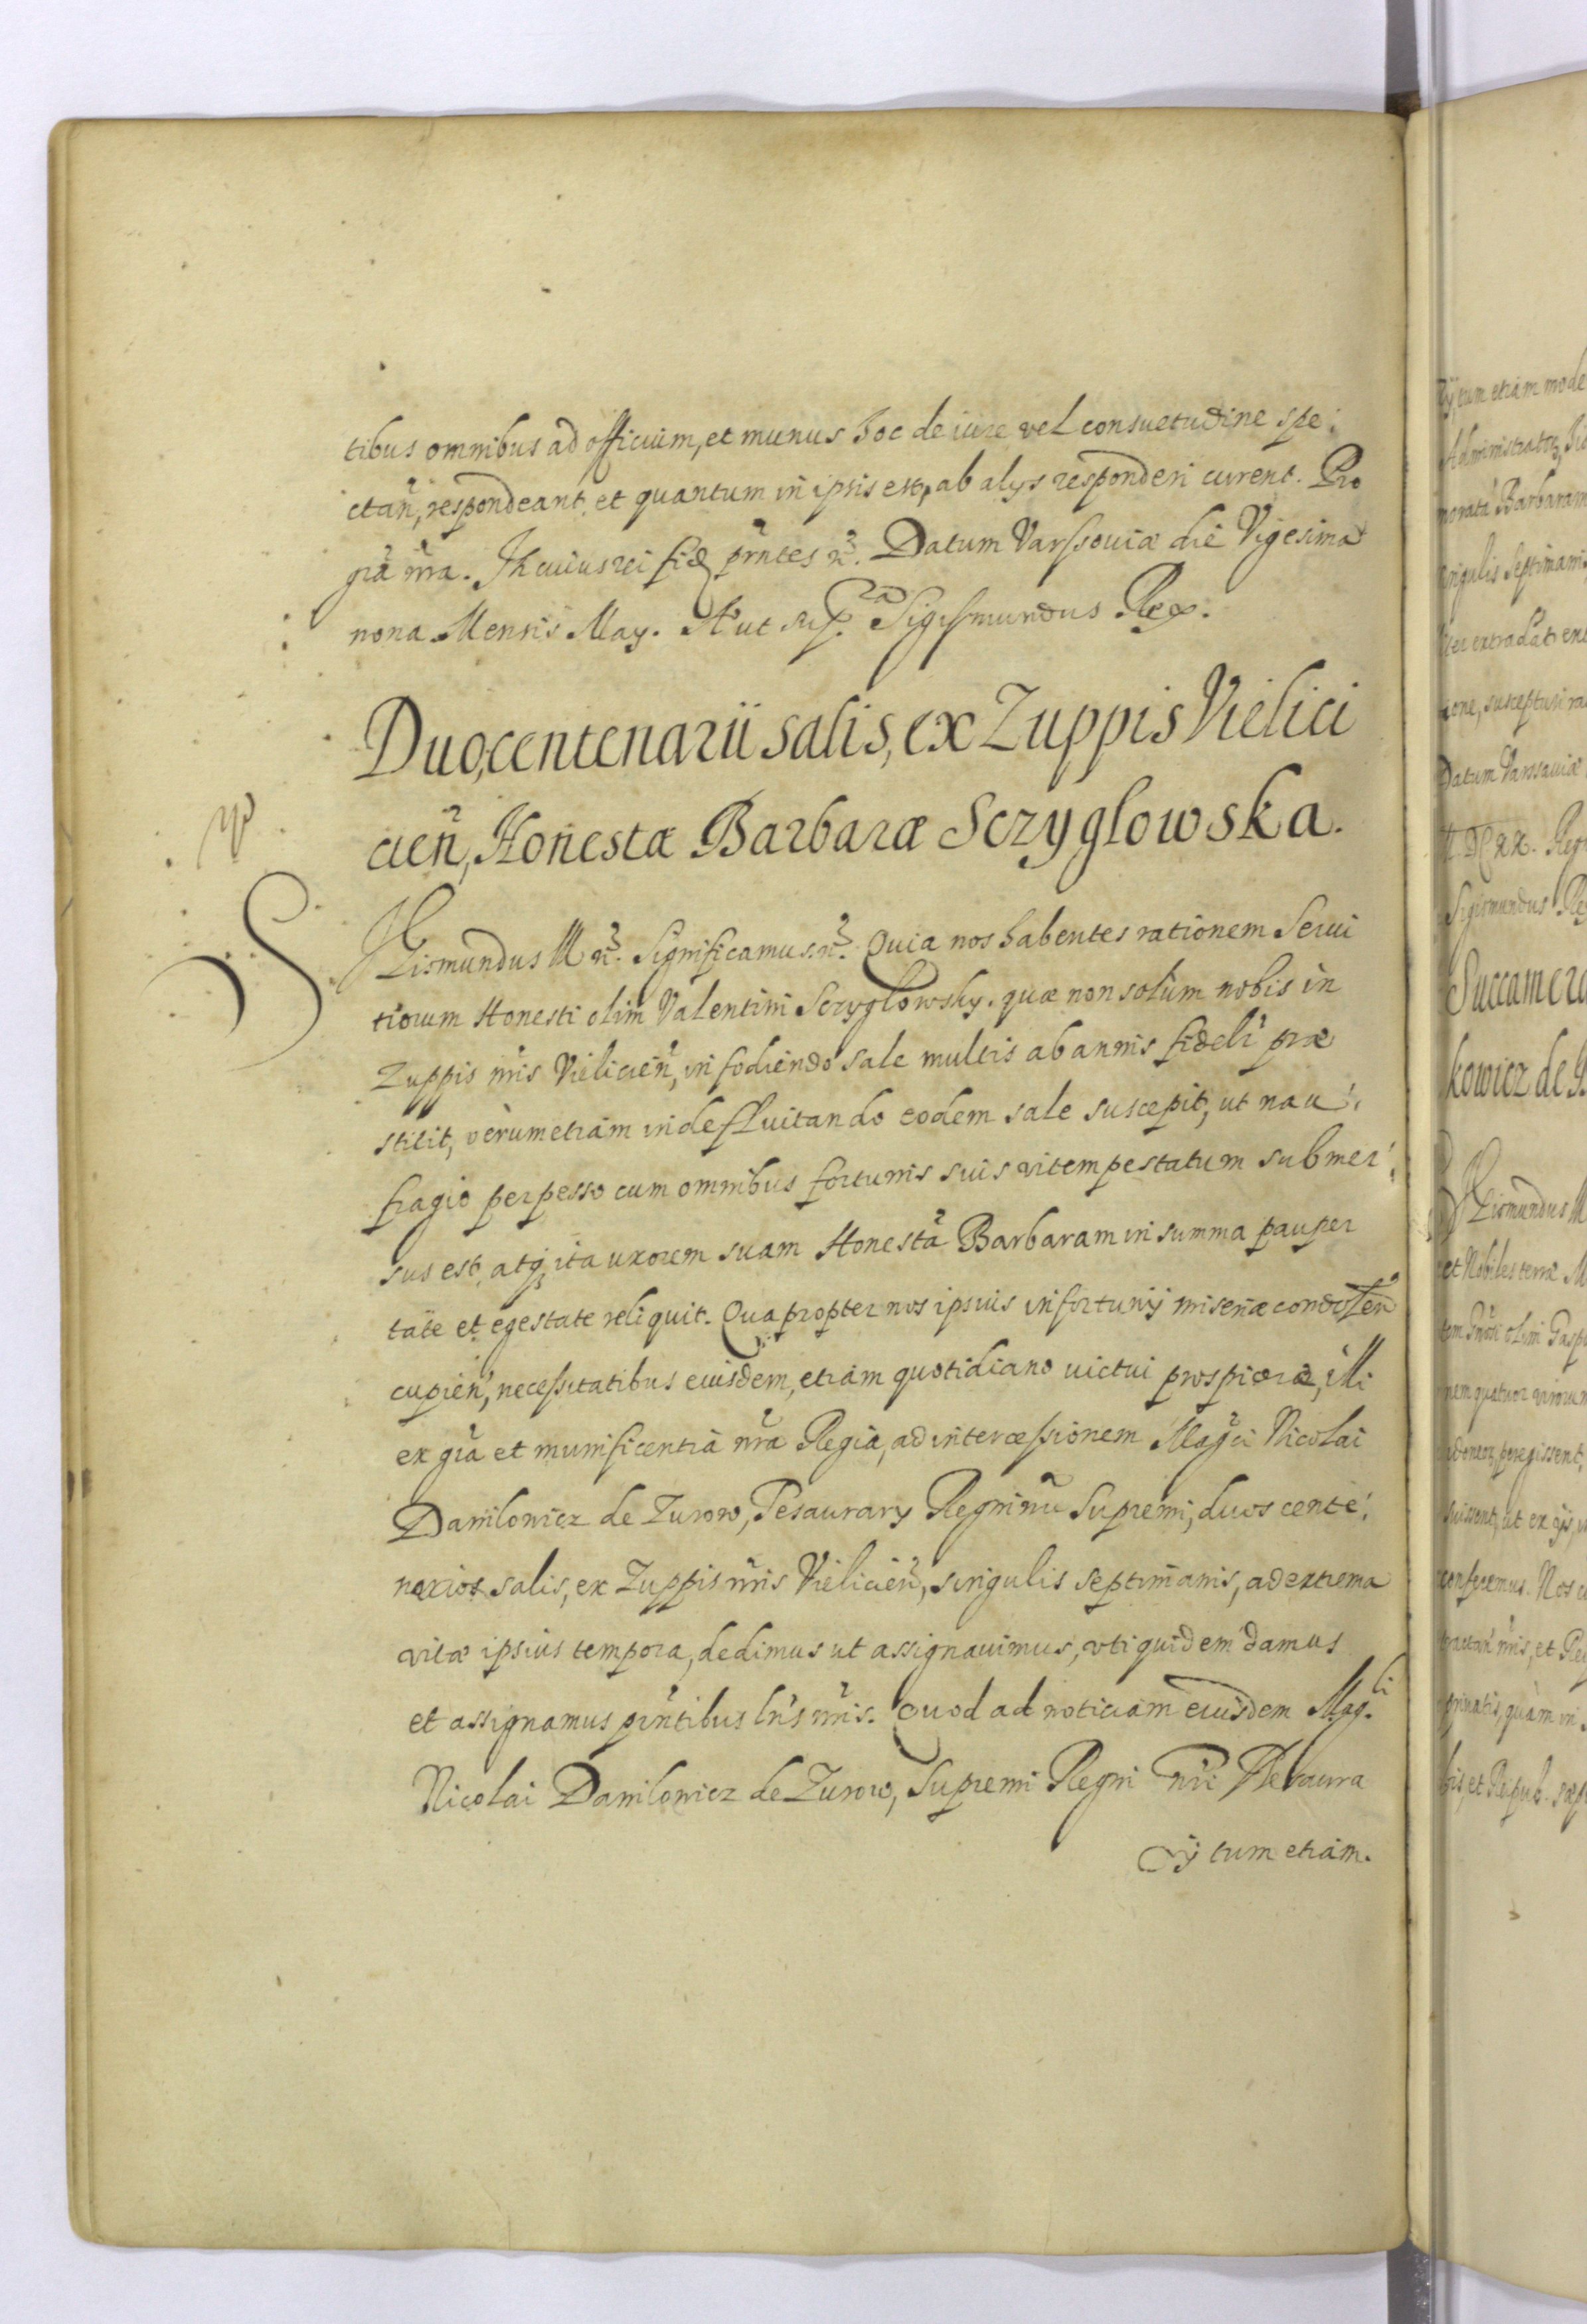 tibus omnibus ad officium, et munus hoc de iure vel consuetudine spe:
ctan̄, respondeant, et quantum in ipsis est, ab alys responderi curent. Pro
gr̃a nr̃a. In cuius rei fid pr̃ntes &c. Datum Varssouiæ die Vigesima
nona Mensis May. A ut sup.ra Sigismundus Rex.
Duo, centenarii salis, ex Zuppis Vielici
cien̄, Honestæ Barbaræ Sczyglowska.
Sigismundus III &c. Significamus &c. Quia nos habentes rationem Serui
tiorum Honesti olim Valentini Sczyglowsky, quæ non solùm nobis in
Zuppis nr̃is Vielicien̄, in fodiendo sale multis ab annis fideli præ
stitit, verùm etiam in defluitando eodem sale suscepit, ut nau:
fragio perpesso cum omnibus fortunis suis vi tempestatum submer:
sus est, atq, ita uxorem suam Honestã Barbaram in summa pauper
tate et egestate reliquit. Qua propter nos ipsius infortunij miseriæ condolen̄
cupien̄, necessitatibus eiusdem, etiam quotidiano victui prospicere, illi
ex gr̃a et munificentia nr̃a Regia, ad intercessionem Mag̃ci Nicolai
Danilowicz de Zurow, Tesaurary Regni nr̃i Supremi, duos cente:
narios salis, ex Zuppis nr̃is Vielicien̄, singulis septimanis, ad extrema
vitæ ipsius tempora, dedimus ut assignauimus, uti quidem damus
et assignamus pr̃ntibus lr̃is nr̃is. Quod ad noticiam eiusdem Mag.ci
Nicolai Danilowicz de Zurow, Supremi Regni nr̃i Thesaura
rij tum etiam.
rij tum etiam mode
Administrator
morata Barbaram
singulis septimanis
Datum Varssauiæ
Sigismundus Re
Succamera
kowicz de
Sigismundus III
et Nobiles terræ